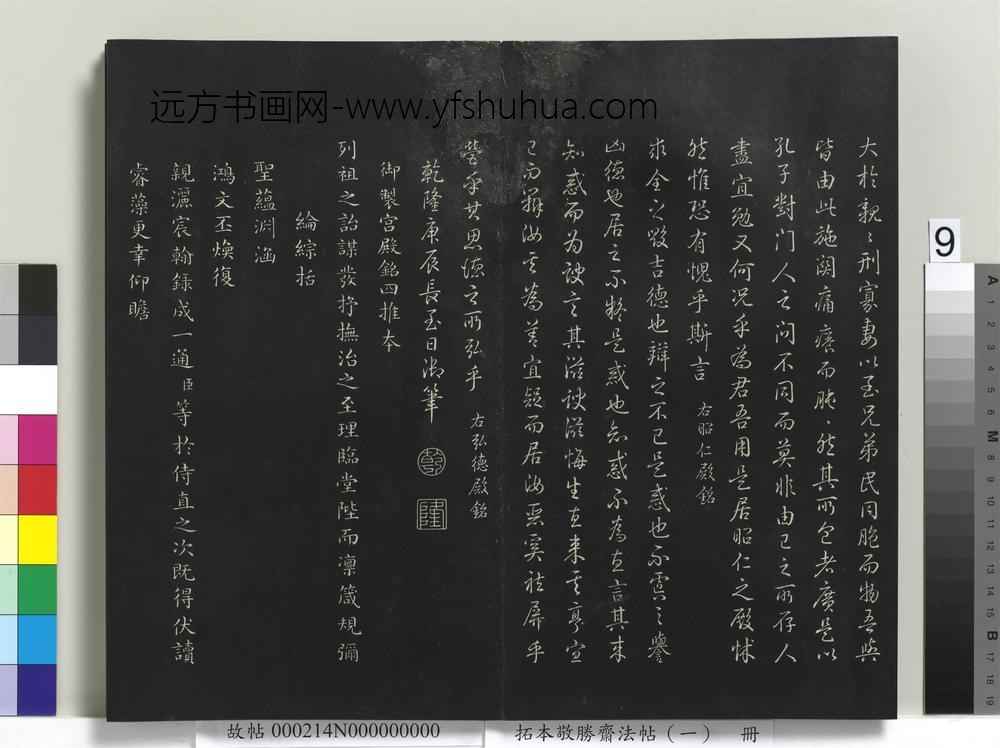 远方书画网-www.yfshuhua.com
大於親親刑寡妻以至兄弟民同胞而物吾與
皆由此施闕痛癢而肫肫然其所包者廣是以
孔子對門人之問不同而莫非由己之所存人
盡宜勉又何況乎為君吾用是居昭仁之殿怵
然惟恐有愧乎斯言 右昭仁殿銘
求全之毀吉德也辯之不已是惑也不虞之譽
凶德也居之不疑是惑也知惑不為在言其来
知惑而为諛言其滋諛滋悔生直来言亨宜
己而辯汝言為善宜疑而居汝惡奚祛屏乎
營乎其思德之所弘乎 右弘德殿銘
乾隆庚辰長至日御筆
乾
隆
御製宮殿銘四推本
列祖之詒謀發抒撫治之至理臨堂陛而凛箴規彌
綸綜括
聖蘊淵涵
鴻文丕煥復
親灑宸翰錄成一通臣等於侍直之次既得伏讀
睿藻更幸仰瞻
9
A 1 2 3 4 5 6 M 8 9 10 11 12 13 14 15 B 17 18 19
故帖 000214N000000000
拓本敬勝齋法帖(一) 冊